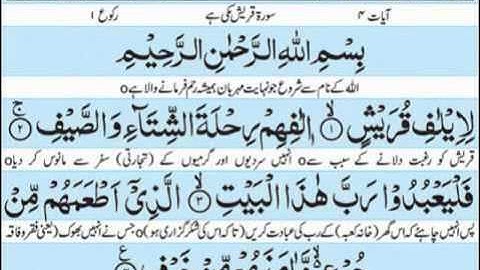 آیات ۴ سورۃ قریش مکی ہے رکوع ۱
بِسْمِ اللّٰهِ الرَّحْمٰنِ الرَّحِیْمِ
اللہ کے نام سے شروع جو نہایت مہربان ہمیشہ رحم فرمانے والا ہے o
لِاِیْلٰفِ قُرَیْشٍ ۙ﴿۱﴾ اٖلٰفِهِمْ رِحْلَةَ الشِّتَآءِ وَ الصَّیْفِ ۚ﴿۲﴾
قریش کو رغبت دلانے کے سبب سے o انہیں سردیوں اور گرمیوں کے (تجارتی) سفر سے مانوس کر دیا o
فَلْیَعْبُدُوْا رَبَّ هٰذَا الْبَیْتِ ۙ﴿۳﴾ الَّذِیْۤ اَطْعَمَهُمْ مِّنْ
پس انہیں چاہئے کہ اس گھر (خانہ کعبہ) کے رب کی عبادت کریں (تاکہ اس کی شکر گزاری ہو) o جس نے انہیں بھوک (یعنی فقر و فاقہ
جُوْعٍ ۙ۬ وَّ اٰمَنَهُمْ مِّنْ خَوْفٍ ﴿۴﴾